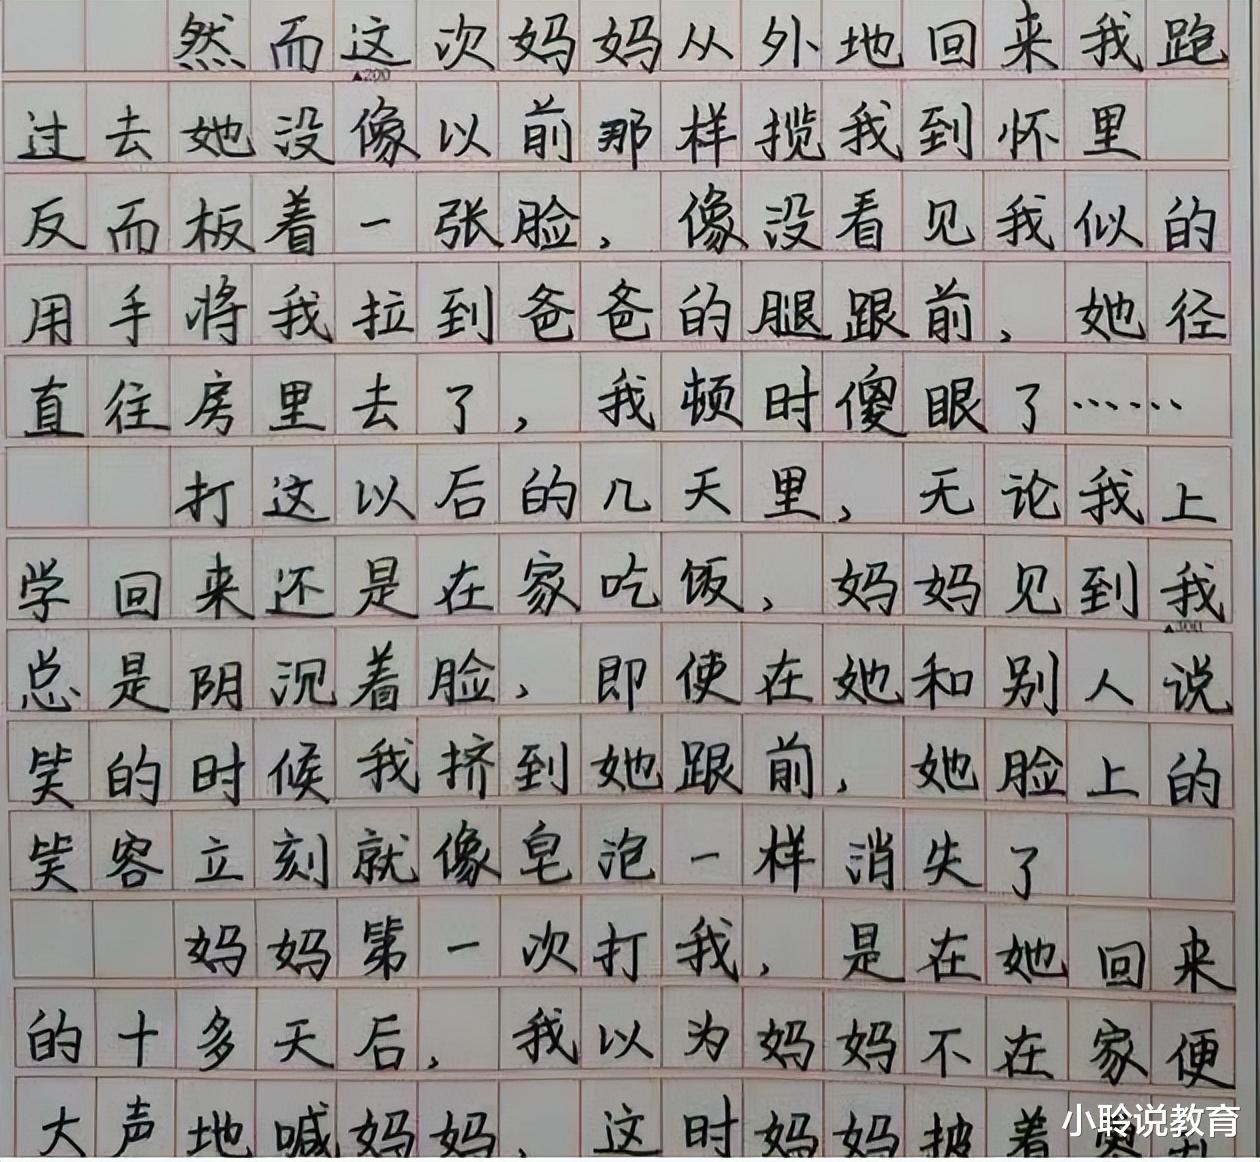 然而这次妈妈从外地回来我跑
▲200
过去她没像以前那样揽我到怀里
反而板着一张脸，像没看见我似的
用手将我拉到爸爸的腿跟前，她径
直往房里去了，我顿时傻眼了……
打这以后的几天里，无论我上
学回来还是在家吃饭，妈妈见到我
▲300
总是阴沉着脸，即使在她和别人说
笑的时候我挤到她跟前，她脸上的
笑容立刻就像皂泡一样消失了
妈妈第一次打我，是在她回来
的十多天后，我以为妈妈不在家便
大声地喊妈妈，这时妈妈披着
小聆说教育